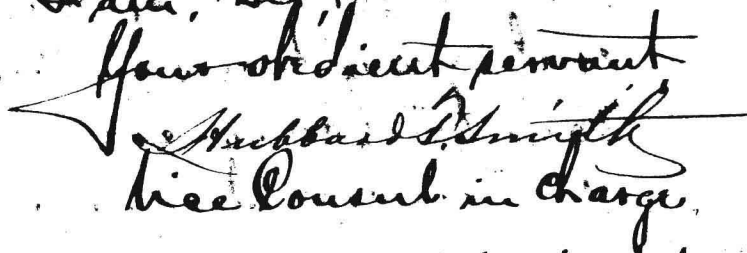 I am, Sir,
Your obedient servant
Hubbard T. Smith
Vice Consul in charge.